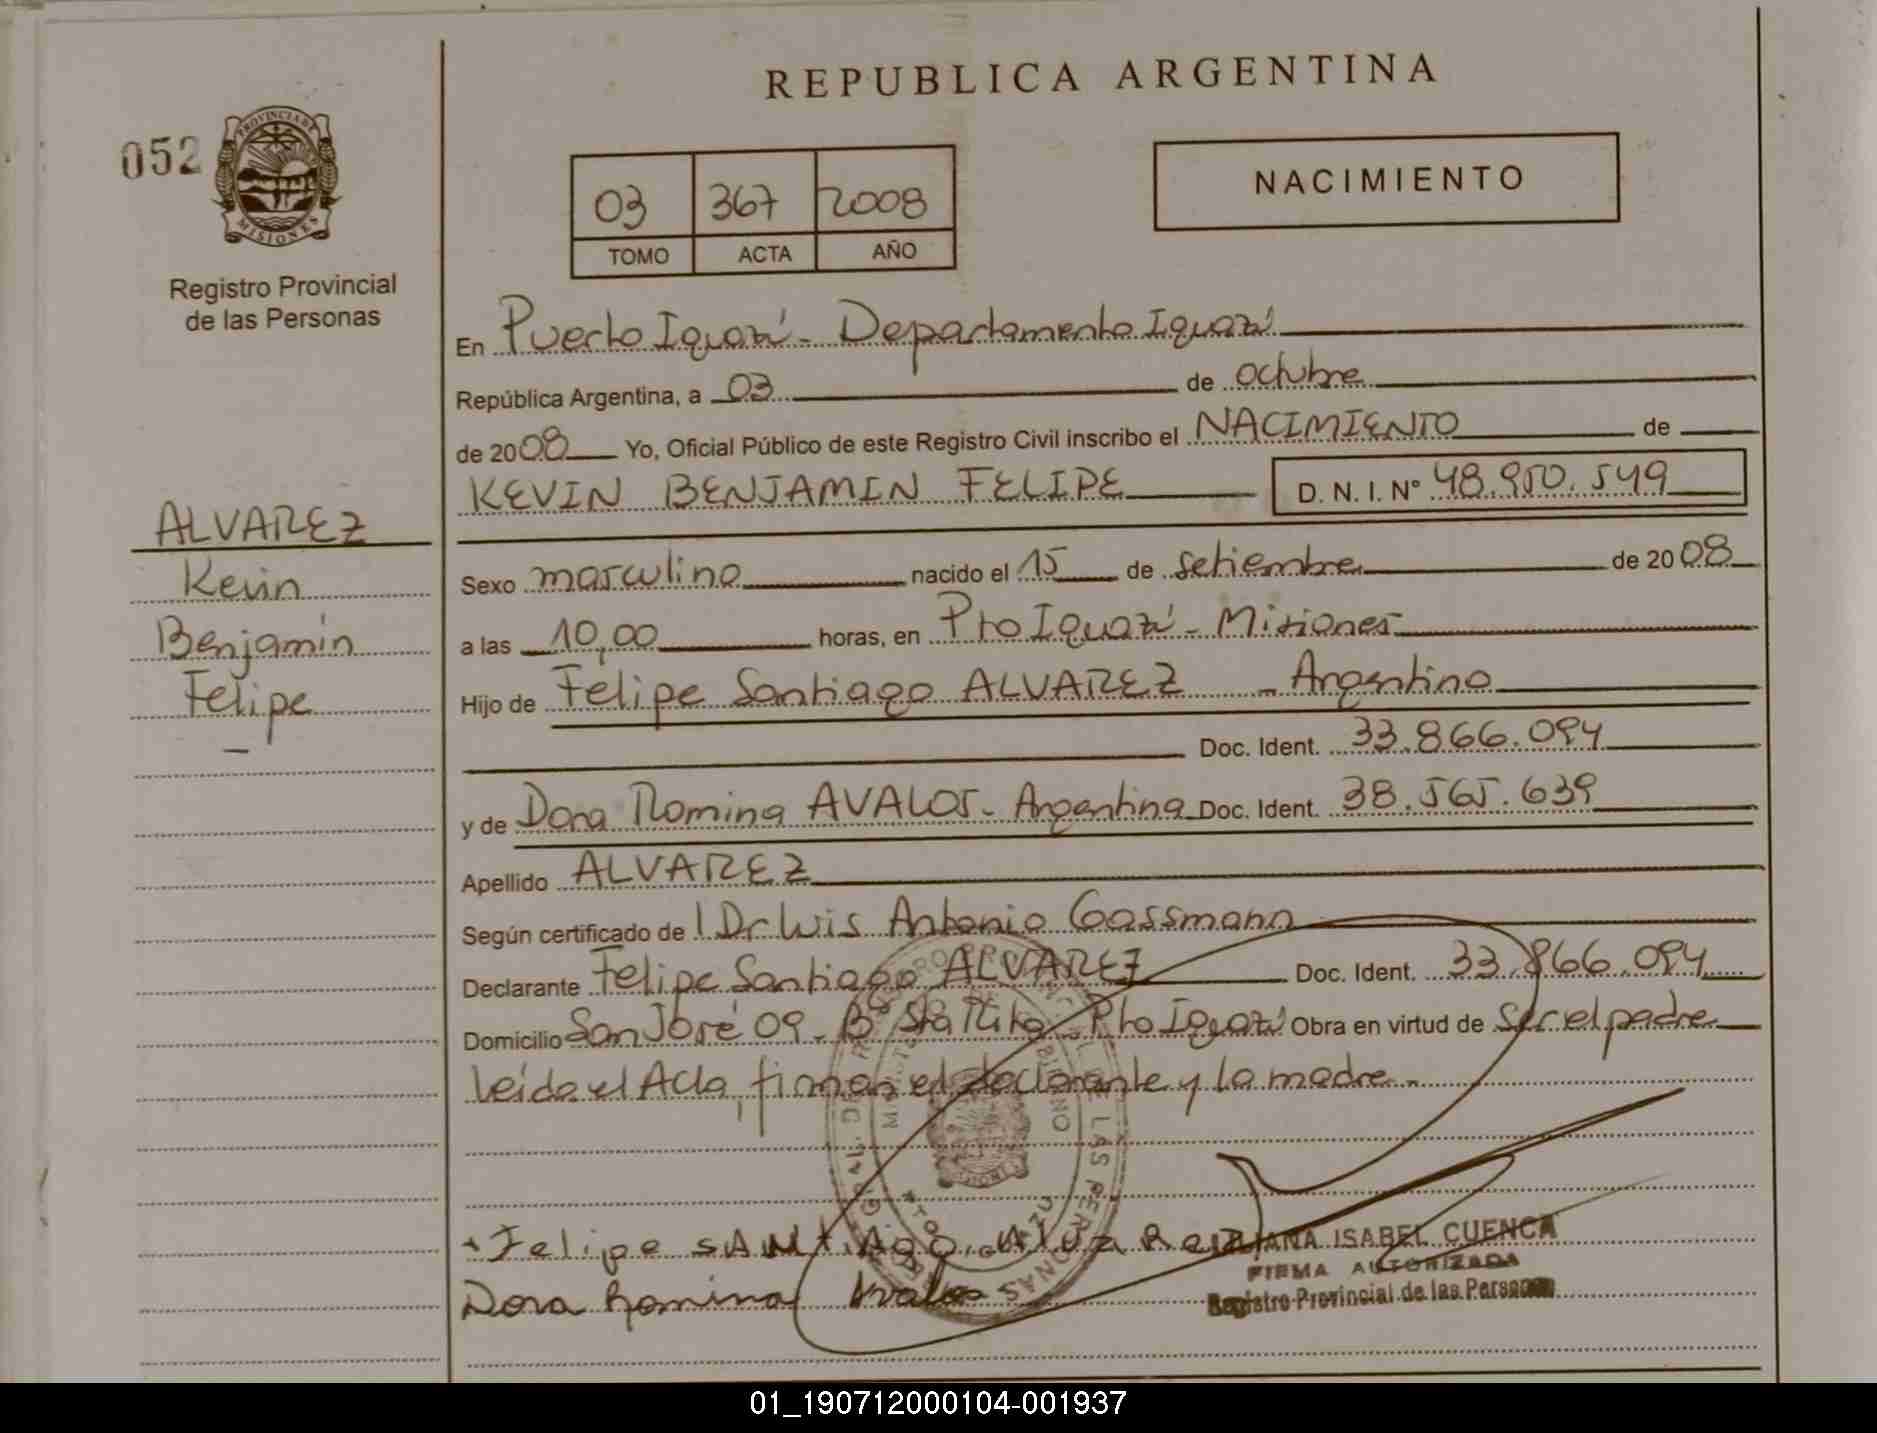 REPUBLICA ARGENTINA
052
PROVINCIA DE
MISIONES
Registro Provincial
de las Personas
03 367 2008
TOMO ACTA AÑO
NACIMIENTO
En Puerto Iguazú - Departamento Iguazú
República Argentina, a 03 de octubre
de 2008 Yo, Oficial Público de este Registro Civil inscribo el NACIMIENTO de
KEVIN BENJAMIN FELIPE D. N. I. Nº 48.950.549
ALVAREZ
Kevin
Benjamín
Felipe
Sexo masculino nacido el 15 de setiembre de 2008
a las 10,00 horas, en Pto Iguazú - Misiones
Hijo de Felipe Santiago ALVAREZ - Argentino
Doc. Ident. 33.866.094
y de Dora Romina AVALOS - Argentina Doc. Ident. 38.565.639
Apellido ALVAREZ
Según certificado de Dr Luis Antonio Gassmann
Declarante Felipe Santiago ALVAREZ Doc. Ident. 33.866.094
Domicilio San José 09 - Bº Sta Rita - Pto Iguazú Obra en virtud de ser el padre
Leída el Acta, firman el declarante y la madre.
Felipe SANTiAgO AlvaRez
Dora Romina Avalos
LILIANA ISABEL CUENCA
FIRMA AUTORIZADA
Registro Provincial de las Personas
01_190712000104-001937